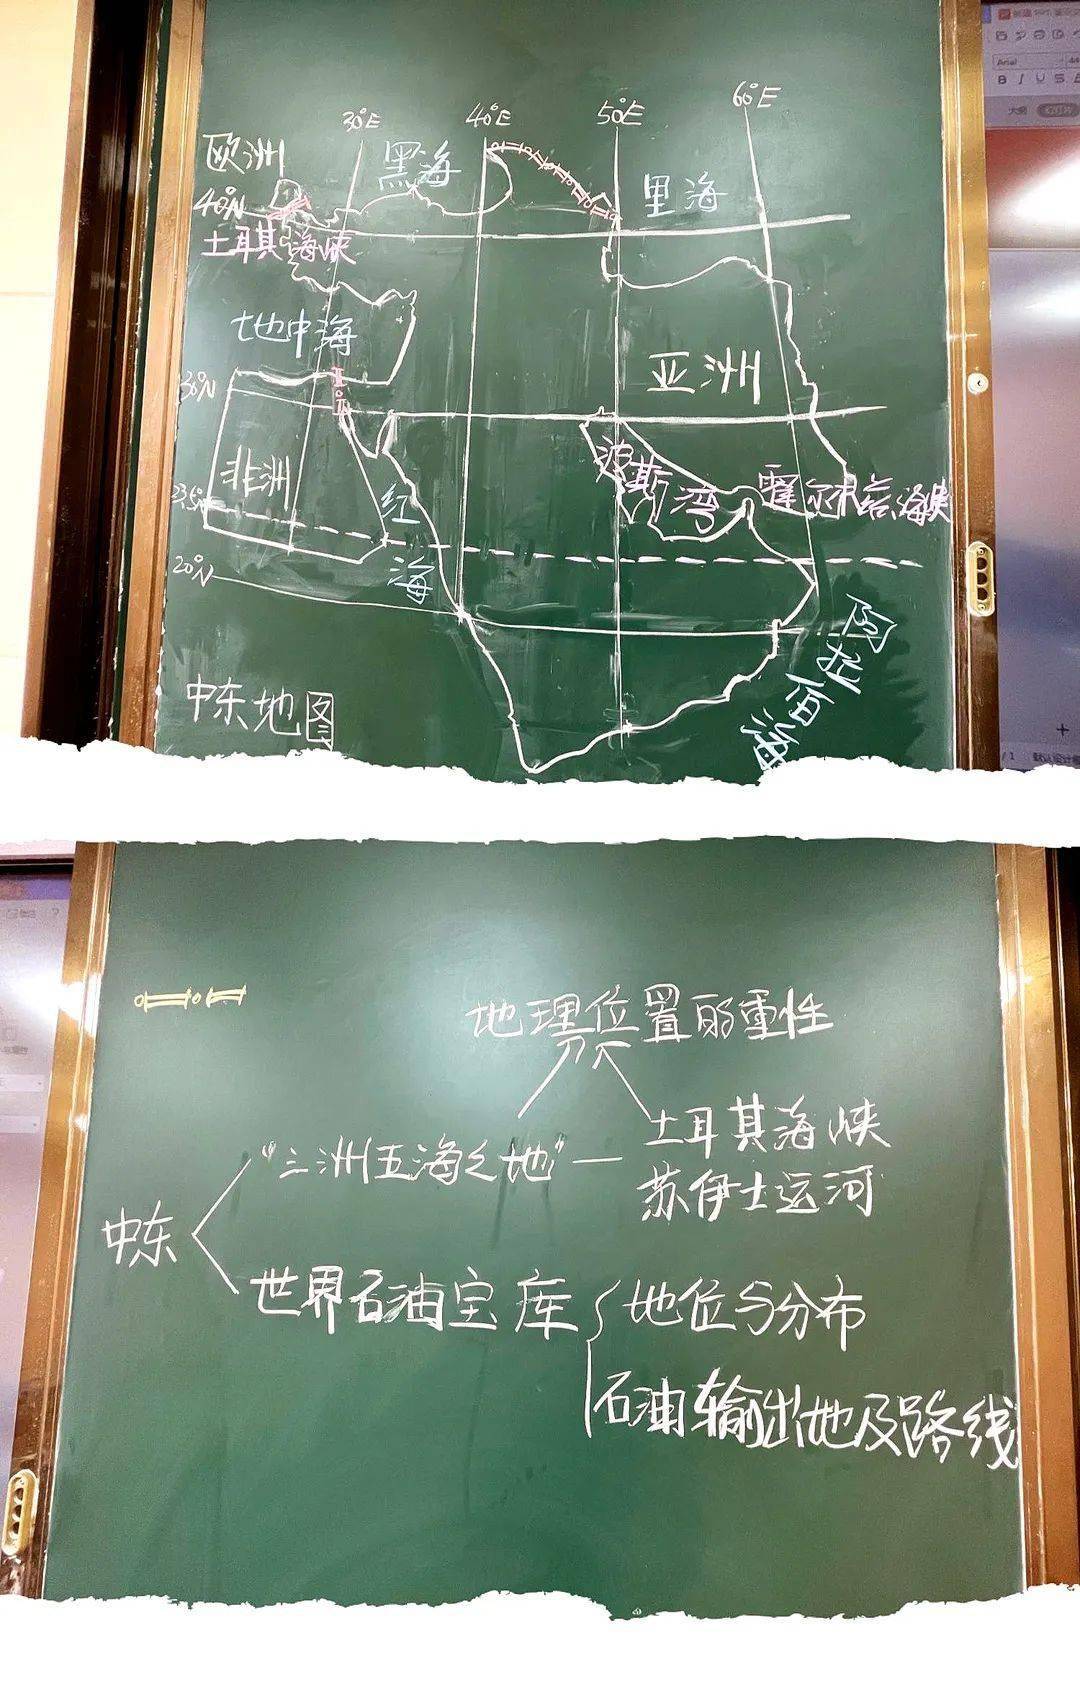 30°E 40°E 50°E 60°E
欧洲 黑海 里海
40°N
土耳其海峡
地中海
亚洲
30°N
非洲
波斯湾 霍尔木兹海峡
23.5°N
红海
20°N
阿拉伯海
中东地图
Arial
B I U S
地理位置的重性
"三洲五海之地"
土耳其海峡
苏伊士运河
中东
世界石油宝库
地位与分布
石油输出地及路线